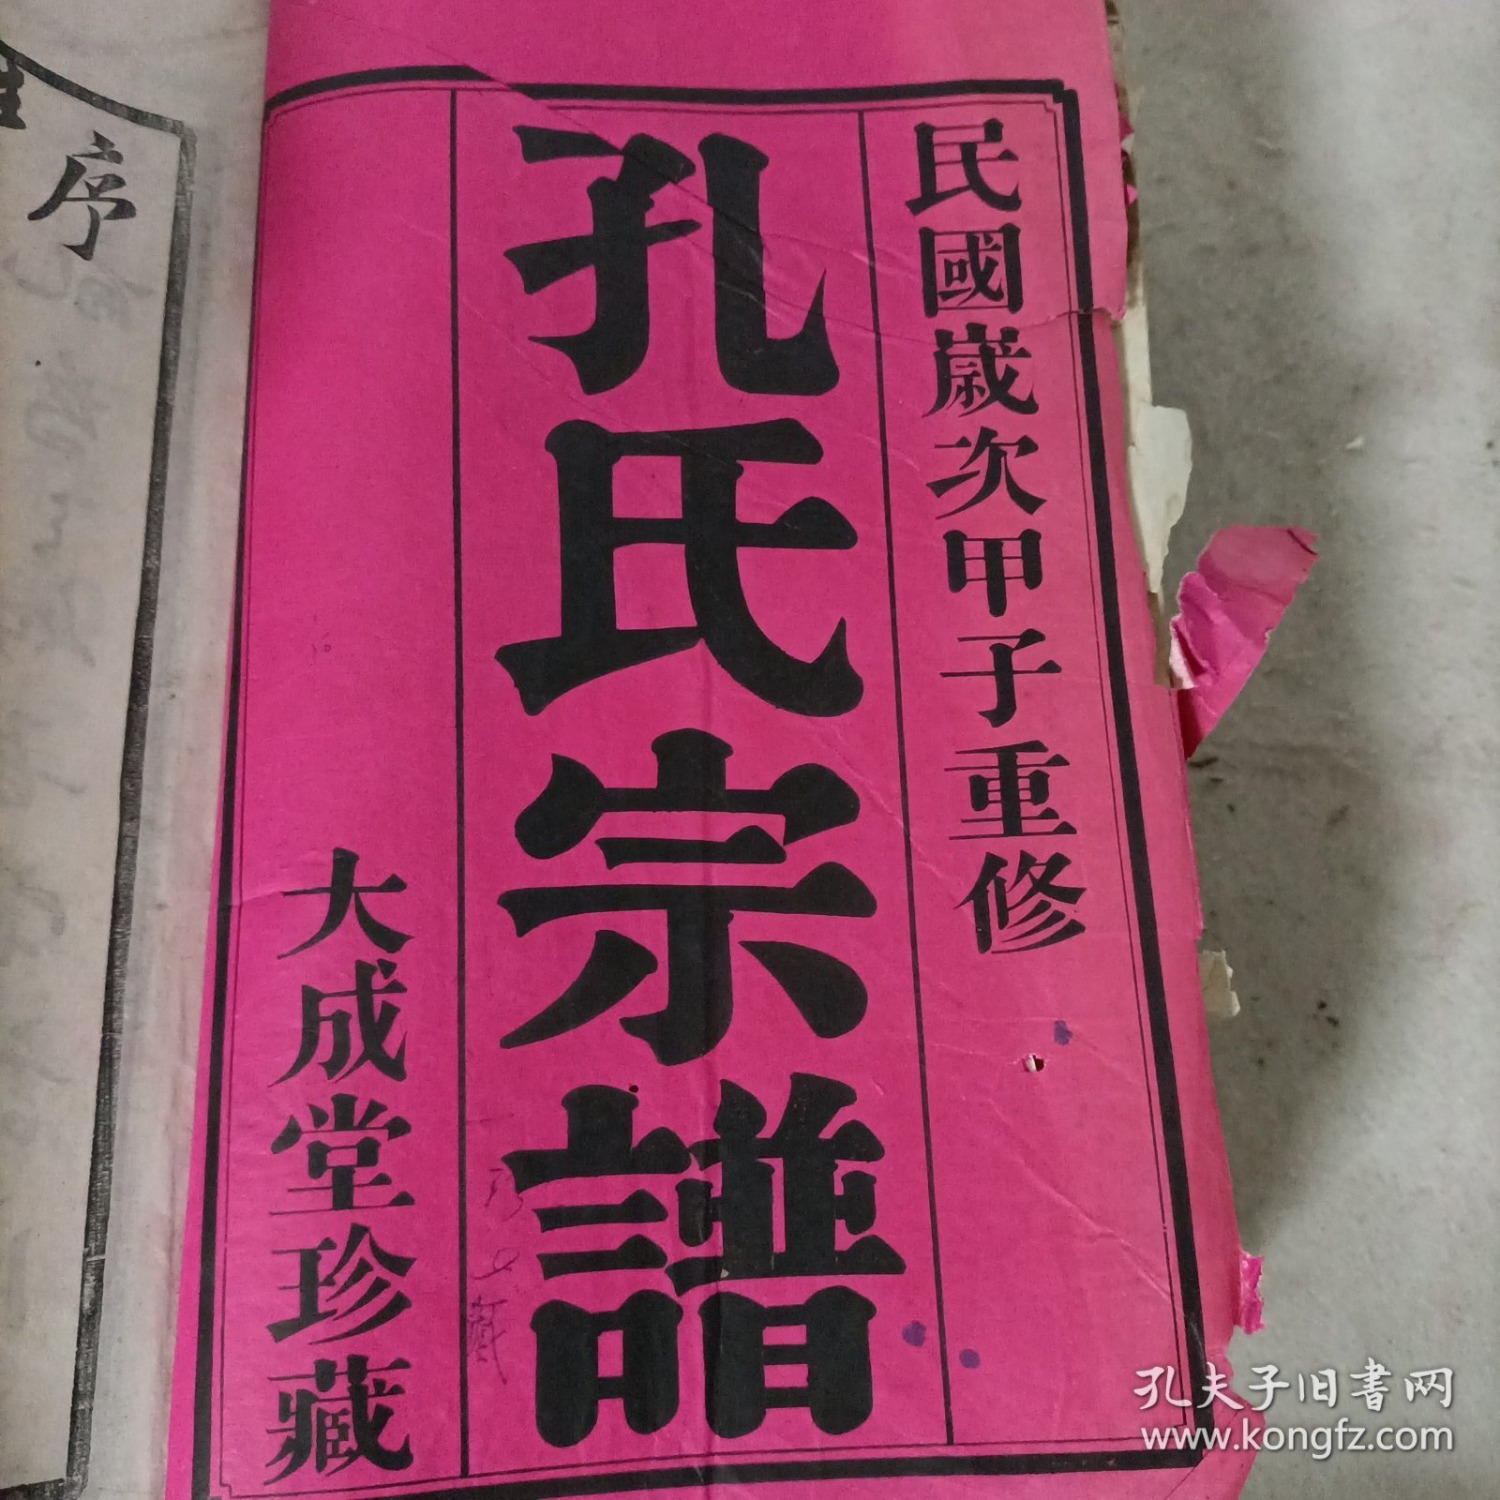 民國歲次甲子重修
孔氏宗譜
大成堂珍藏
序
孔夫子旧書网
www.kongfz.com